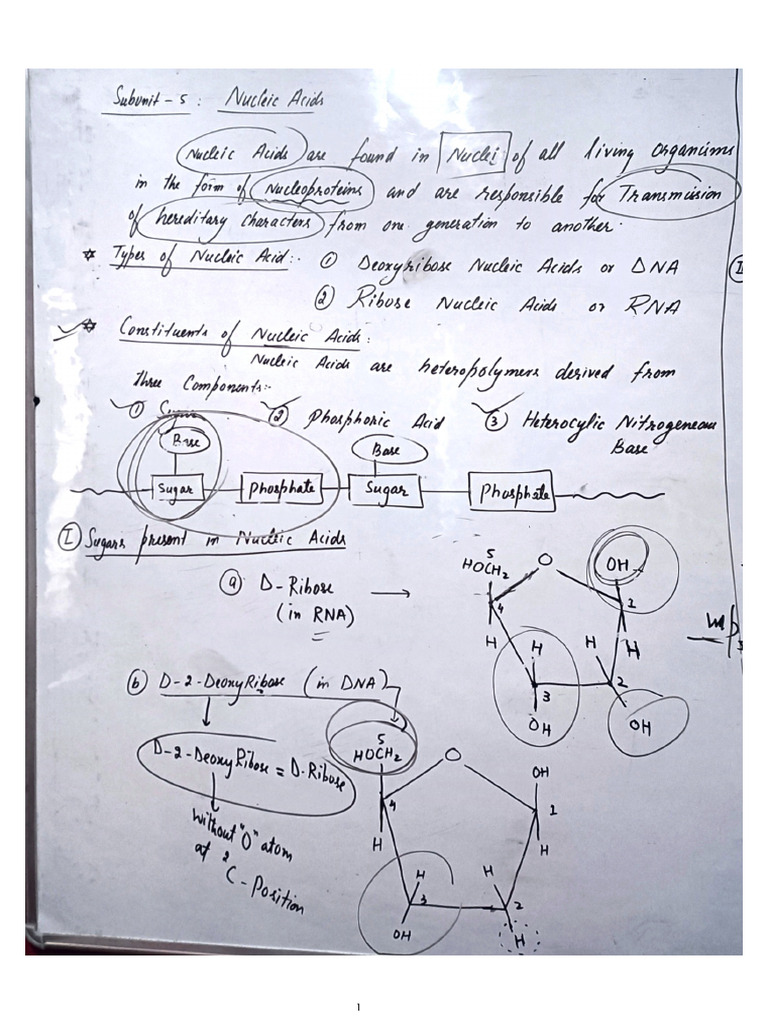 Subunit-5: Nucleic Acids
Nucleic Acids are found in Nuclei of all living organisms
in the form of Nucleoproteins and are responsible for Transmission
of hereditary characters from one generation to another.
* Types of Nucleic Acid:- ① Deoxyribose Nucleic Acids or DNA
② Ribose Nucleic Acids or RNA
* Constituents of Nucleic Acids:
Nucleic Acids are heteropolymers derived from
three Components:-
① Sugar ② Phosphoric Acid ③ Heterocylic Nitrogeneous
Base
Base Base
Sugar Phosphate Sugar Phosphate
I Sugars present in Nucleic Acids
ⓐ D-Ribose →
(in RNA)
5
HOCH2 O OH
4 1
H H H H
3 2
OH OH
ⓑ D-2-DeoxyRibose (in DNA)
D-2-DeoxyRibose = D-Ribose
without "O" atom
at 2
C-Position
5
HOCH2 O OH
4 1
H H
H H
3 2
OH H
1